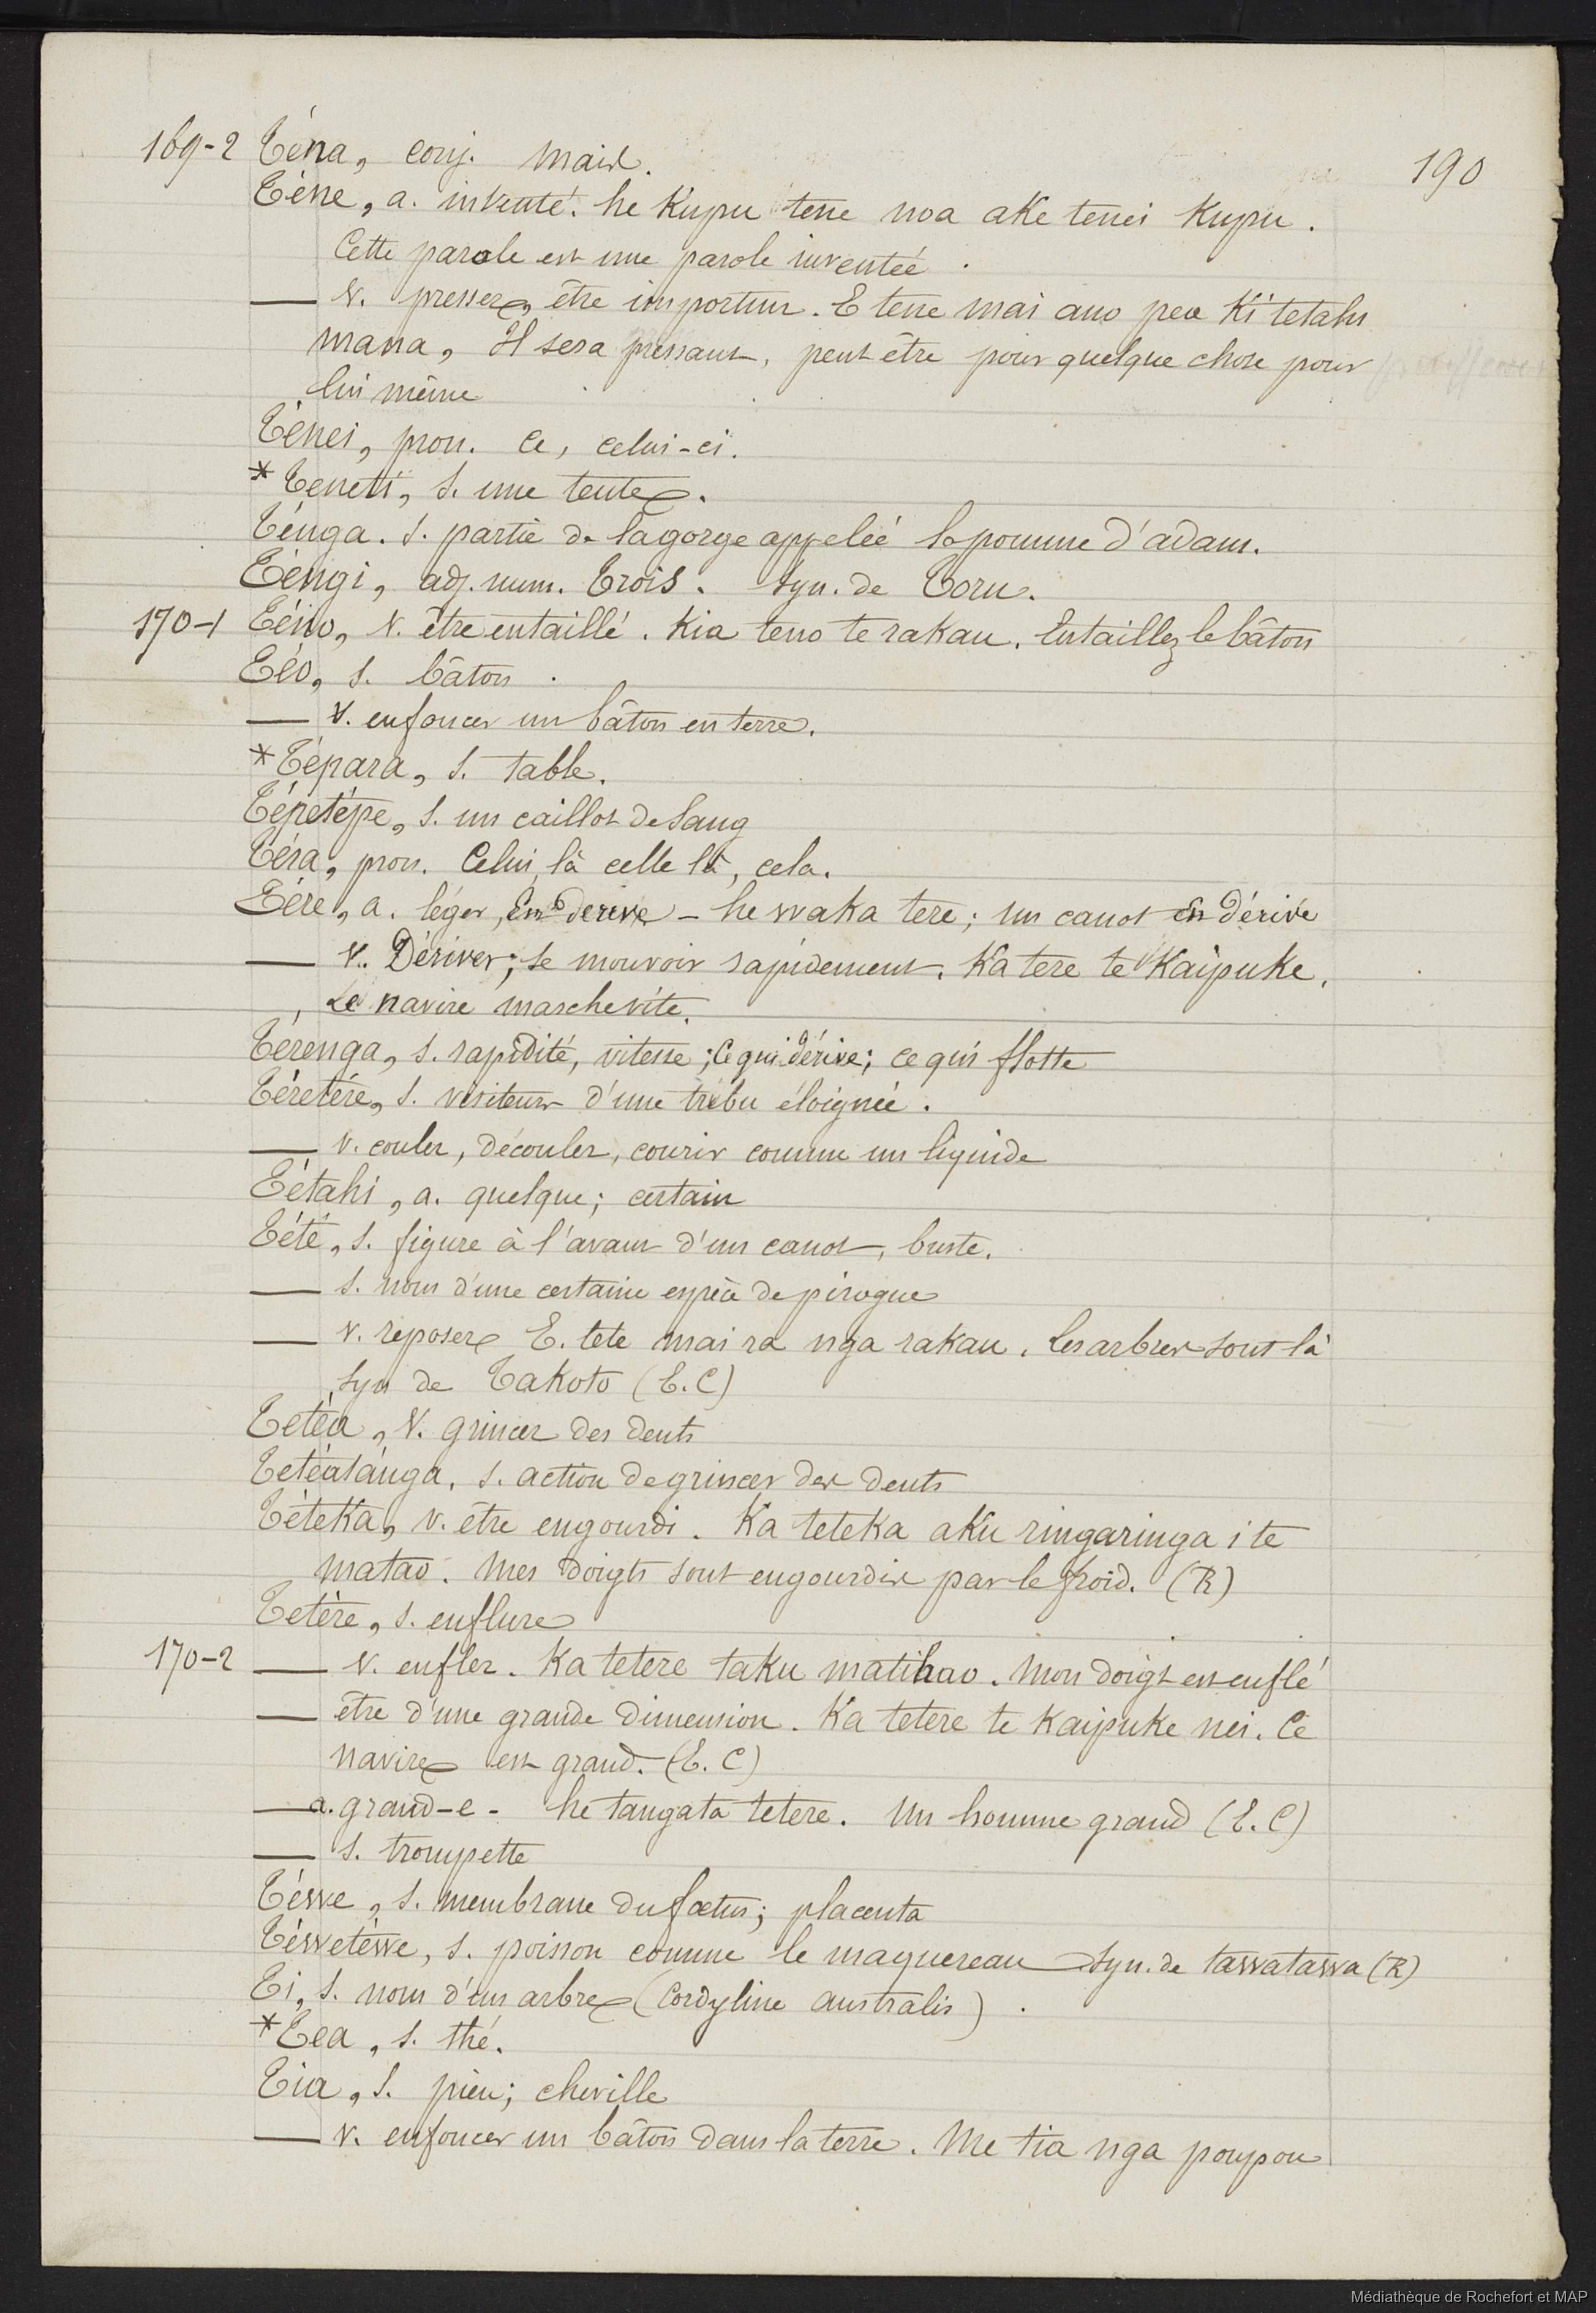 169-2 Téna, conj. mais.
190
Téne, a. inventé. he Kupu tene noa ake tenei Kupu.
Cette parole est une parole inventée.
— V. presser, être importun. E tene mai ano pea Ki tetahi
mana, Il sera pressant, peut être pour quelque chose pour
lui même
Ténei, pron. Ce, celui-ci.
*Teneti, S. une tente.
Ténga. S. partie de la gorge appelée la pomme d'adam.
Téngi, adj. num. Trois. Syn. de Toru.
170-1 Téno, V. être entaillé. Kia teno te rakau. Entaillez le bâton
Téo, S. bâton.
— V. enfoncer un bâton en terre.
*Tépara, S. table.
Tépetépe, S. un caillot de Sang
Téra, pron. Celui là celle là, cela.
Tére, a. léger, en derive - he waka tere; un canot en dérive
— V. Dériver; se mouvoir rapidement. Ka tere te Kaipuke.
Le navire marche vite.
Térenga, S. rapidité, vitesse; Ce qui dérive; ce qui flotte
Téretére, S. visiteur d'une tribu éloignée.
— V. couler, découler, courir comme un liquide
Tétahi, a. quelque; certain
Tété, S. figure à l'avant d'un canot, buste.
— S. nom d'une certaine espèce de pirogue
— V. reposer E. tete mai ra nga rakau. Les arbres sont là
Syn de Takoto (E.C)
Tetéa, V. grincer des dents
Tetéatánga, S. action de grincer des dents
Téteka, V. être engourdi. Ka teteka aku ringaringa i te
matao. Mes doigts sont engourdis par le froid. (R)
Tetére, S. enflure
170-2 — V. enfler. Ka tetere taku matihao. Mon doigt est enflé
— être d'une grande dimension. Ka tetere te Kaipuke nei. Ce
navire est grand. (E.C)
— a. grand-e- he tangata tetere. Un homme grand (E.C)
— S. trompette
Téwe, S. membrane du fœtus; placenta
Téwetéwe, S. poisson comme le maquereau Syn. de tawatawa (R)
Ti, S. nom d'un arbre (Cordyline australis).
*Tea, S. thé.
Tia, S. pieu; cheville
— V. enfoncer un bâton dans la terre. Me tia nga poupou
Médiathèque de Rochefort et MAP